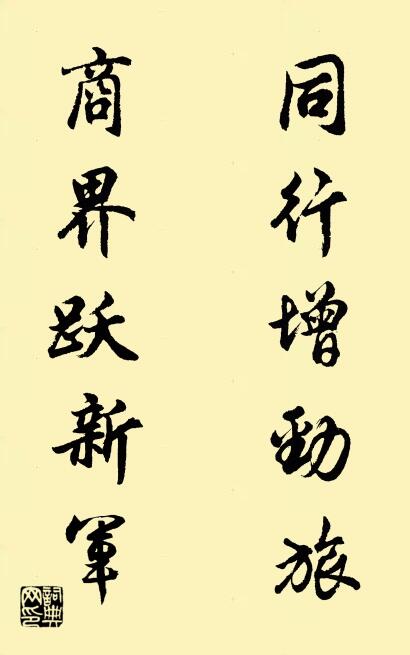 同行增劲旅
商界跃新军
词典网印